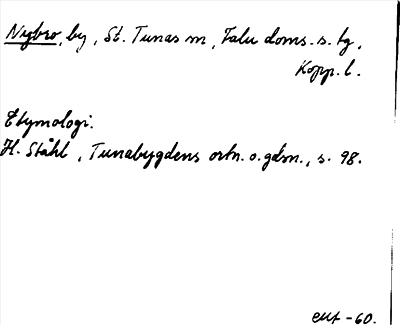 Nybro, by, St. Tunas sn, Falu doms. s. tg,
Kopp. l.
Etymologi.
H. Ståhl, Tunabygdens ortn. o. gdsn., s. 98.
-60.